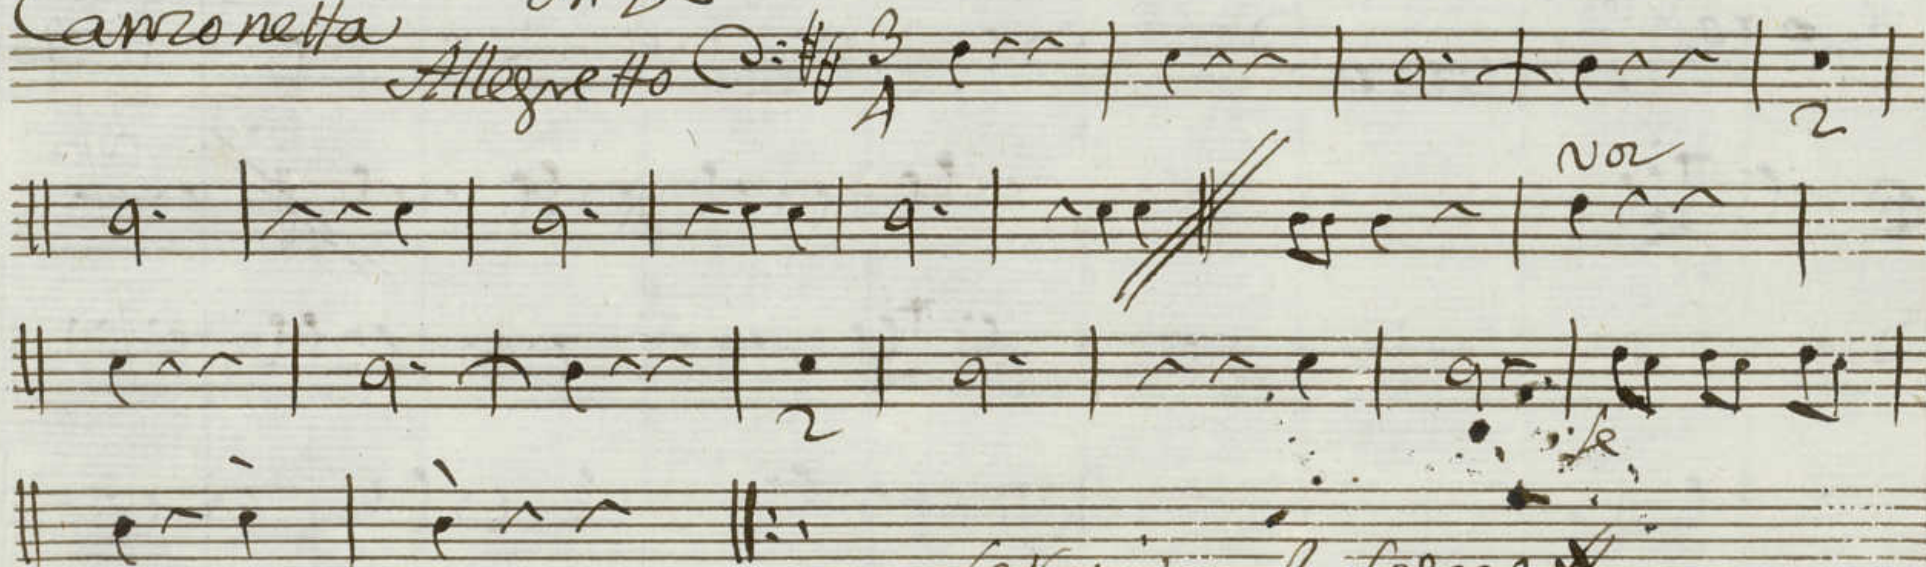 Canzonetta
Allegretto 3
4
2
voz
2
fe